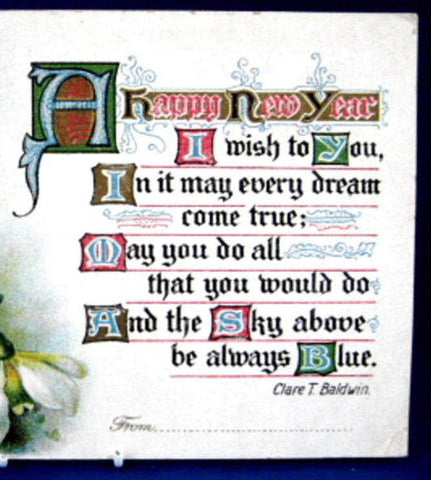 A Happy New Year
I wish to You,
In it may every dream
come true;
May you do all
that you would do
And the Sky above
be always Blue.
Clare T. Baldwin.
From